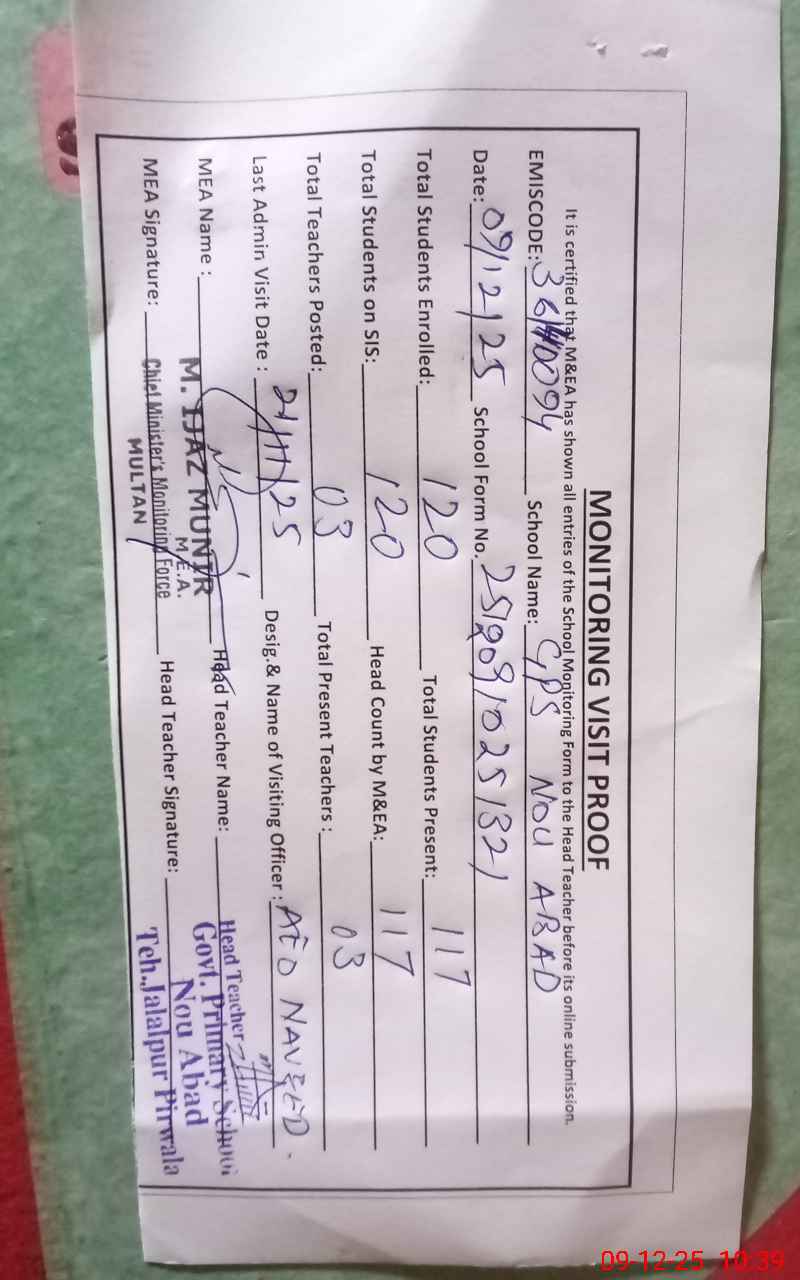 MONITORING VISIT PROOF
It is certified that M&EA has shown all entries of the School Monitoring Form to the Head Teacher before its online submission.
EMISCODE: School Name: GPS NOU ABAD
Date: 09/12/25 School Form No.
Total Students Enrolled: 120 Total Students Present: 117
Total Students on SIS: 120 Head Count by M&EA: 117
Total Teachers Posted: 03 Total Present Teachers : 03
Last Admin Visit Date : Desig.& Name of Visiting Officer : AEO NAVEED.
MEA Name : M. IJAZ MUNIR Head Teacher Name: Head Teacher
M.E.A. Govt. Primary School
MEA Signature: Chief Minister's Monitoring Force Head Teacher Signature: Nou Abad
MULTAN Teh.Jalalpur Pirwala
09-12-25 10:39